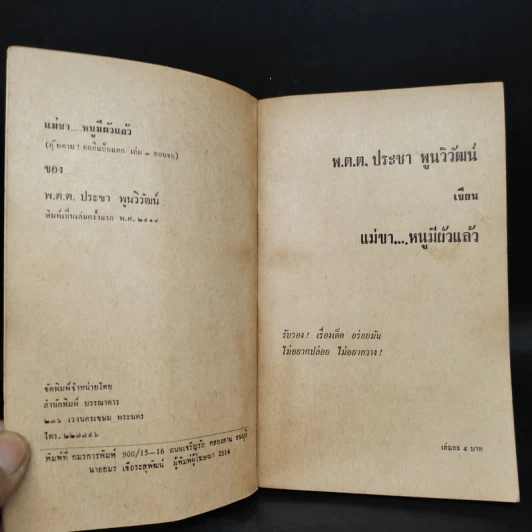 แม่ขา....หนูมีผัวแล้ว
ของ
พ.ต.ต. ประชา พูนวิวัฒน์
พิมพ์เป็นเล่มครั้งแรก พ.ศ. ๒๕๑๔
จัดพิมพ์จำหน่ายโดย
สำนักพิมพ์ บรรณาคาร
๒๓๖ เวิ้งนครเขษม พระนคร
โทร. ๒๒๗๗๙๖
พิมพ์ที่ อมรการพิมพ์ 900/15-16 ถนนเจริญรัถ คลองสาน ธนบุรี
นายอมร เจียระสุพัฒน์ ผู้พิมพ์ผู้โฆษณา 2514
พ.ต.ต. ประชา พูนวิวัฒน์
เขียน
แม่ขา....หนูมีผัวแล้ว
รับรอง! เรื่องเด็ด อร่อยมัน
ไม่อยากปล่อย ไม่อยากวาง!
เล่มละ ๕ บาท